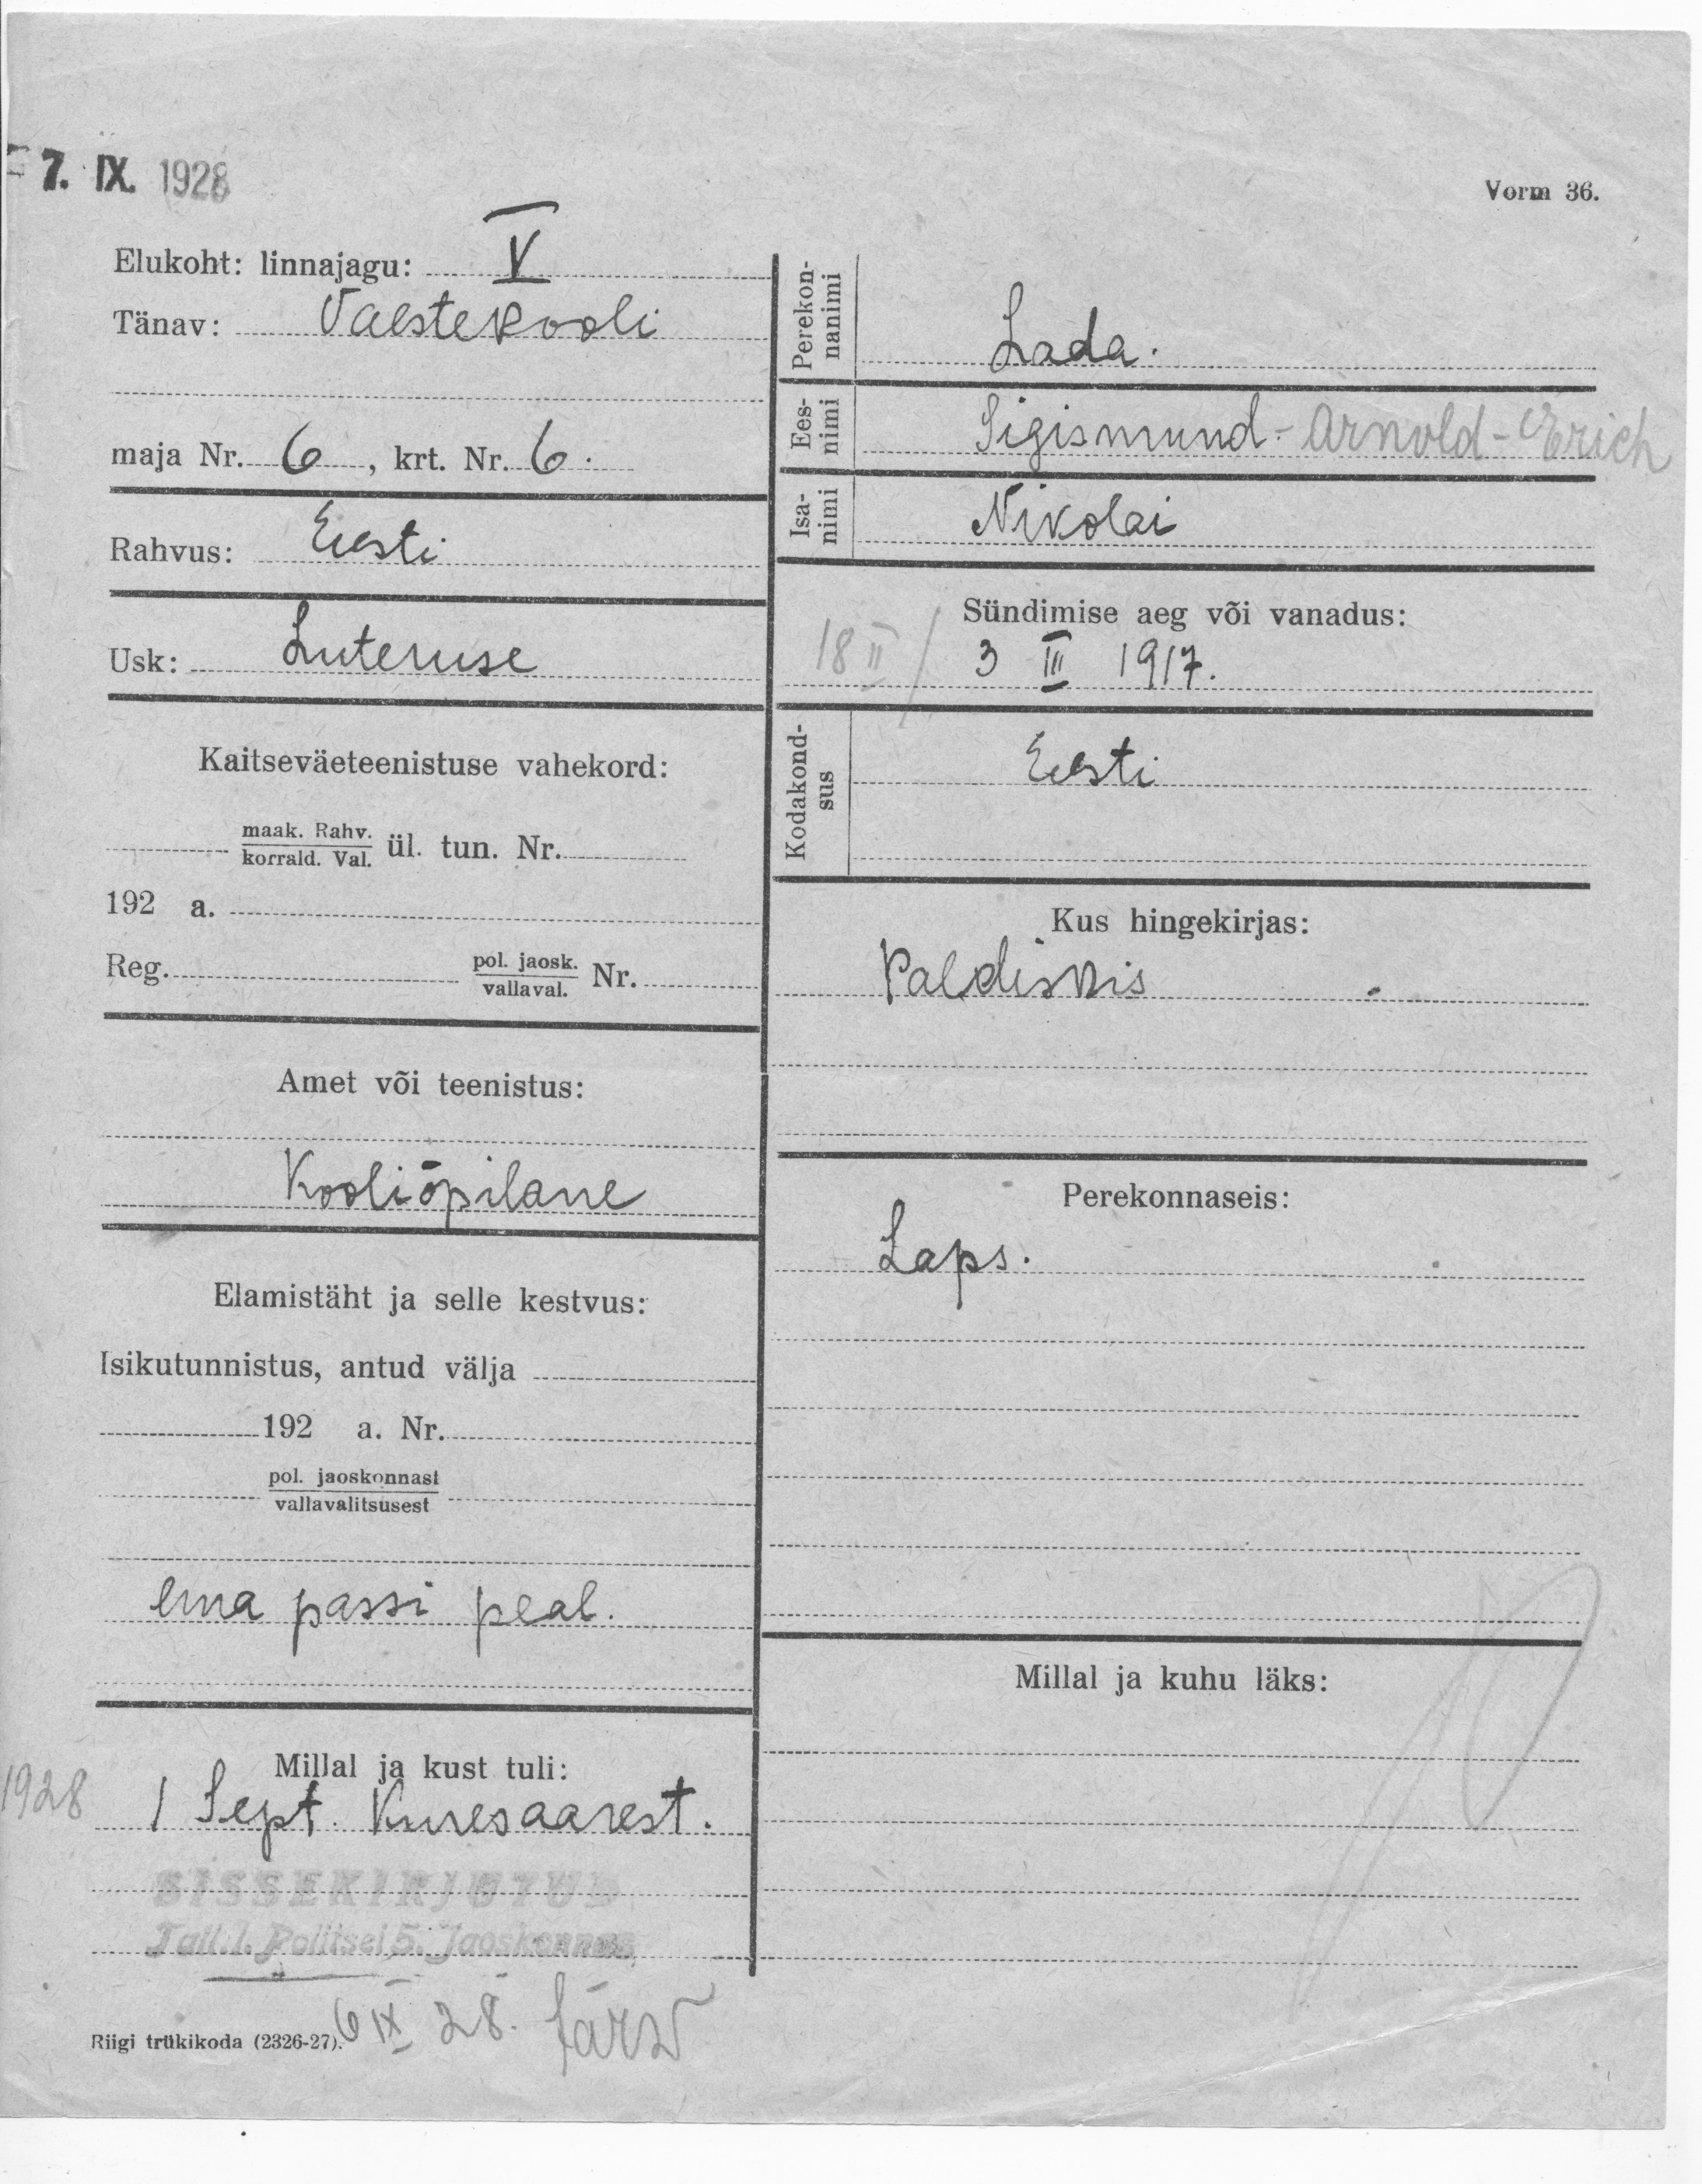 7. IX. 1928
Vorm 36.
Elukoht: linnajagu: V
Tänav: Vaestekooli
maja Nr. 6, krt. Nr. 6.
Rahvus: Eesti
Usk: Luteruse
Kaitseväeteenistuse vahekord:
maak. Rahv.
korrald. Val. ül. tun. Nr.
192 a.
Reg. pol. jaosk.
vallaval. Nr.
Amet või teenistus:
Kooliõpilane
Elamistäht ja selle kestvus:
Isikutunnistus, antud välja
192 a. Nr.
pol. jaoskonnast
vallavalitsusest
ema passi peal.
Millal ja kust tuli:
1928 1 Sept. Kuresaarest.
SISSEKIRJUTUD
Tall. l. Politsei 5. Jaoskonnas
6 IX 28. Järv
Riigi trükikoda (2326-27).
Perekon-
nanimi
Lada.
Ees-
nimi
Sigismund-Arnold-Erich
Isa-
nimi
Nikolai
Sündimise aeg või vanadus:
18 II / 3 III 1917.
Kodakond-
sus
Eesti
Kus hingekirjas:
Paldiskis
Perekonnaseis:
Laps.
Millal ja kuhu läks: